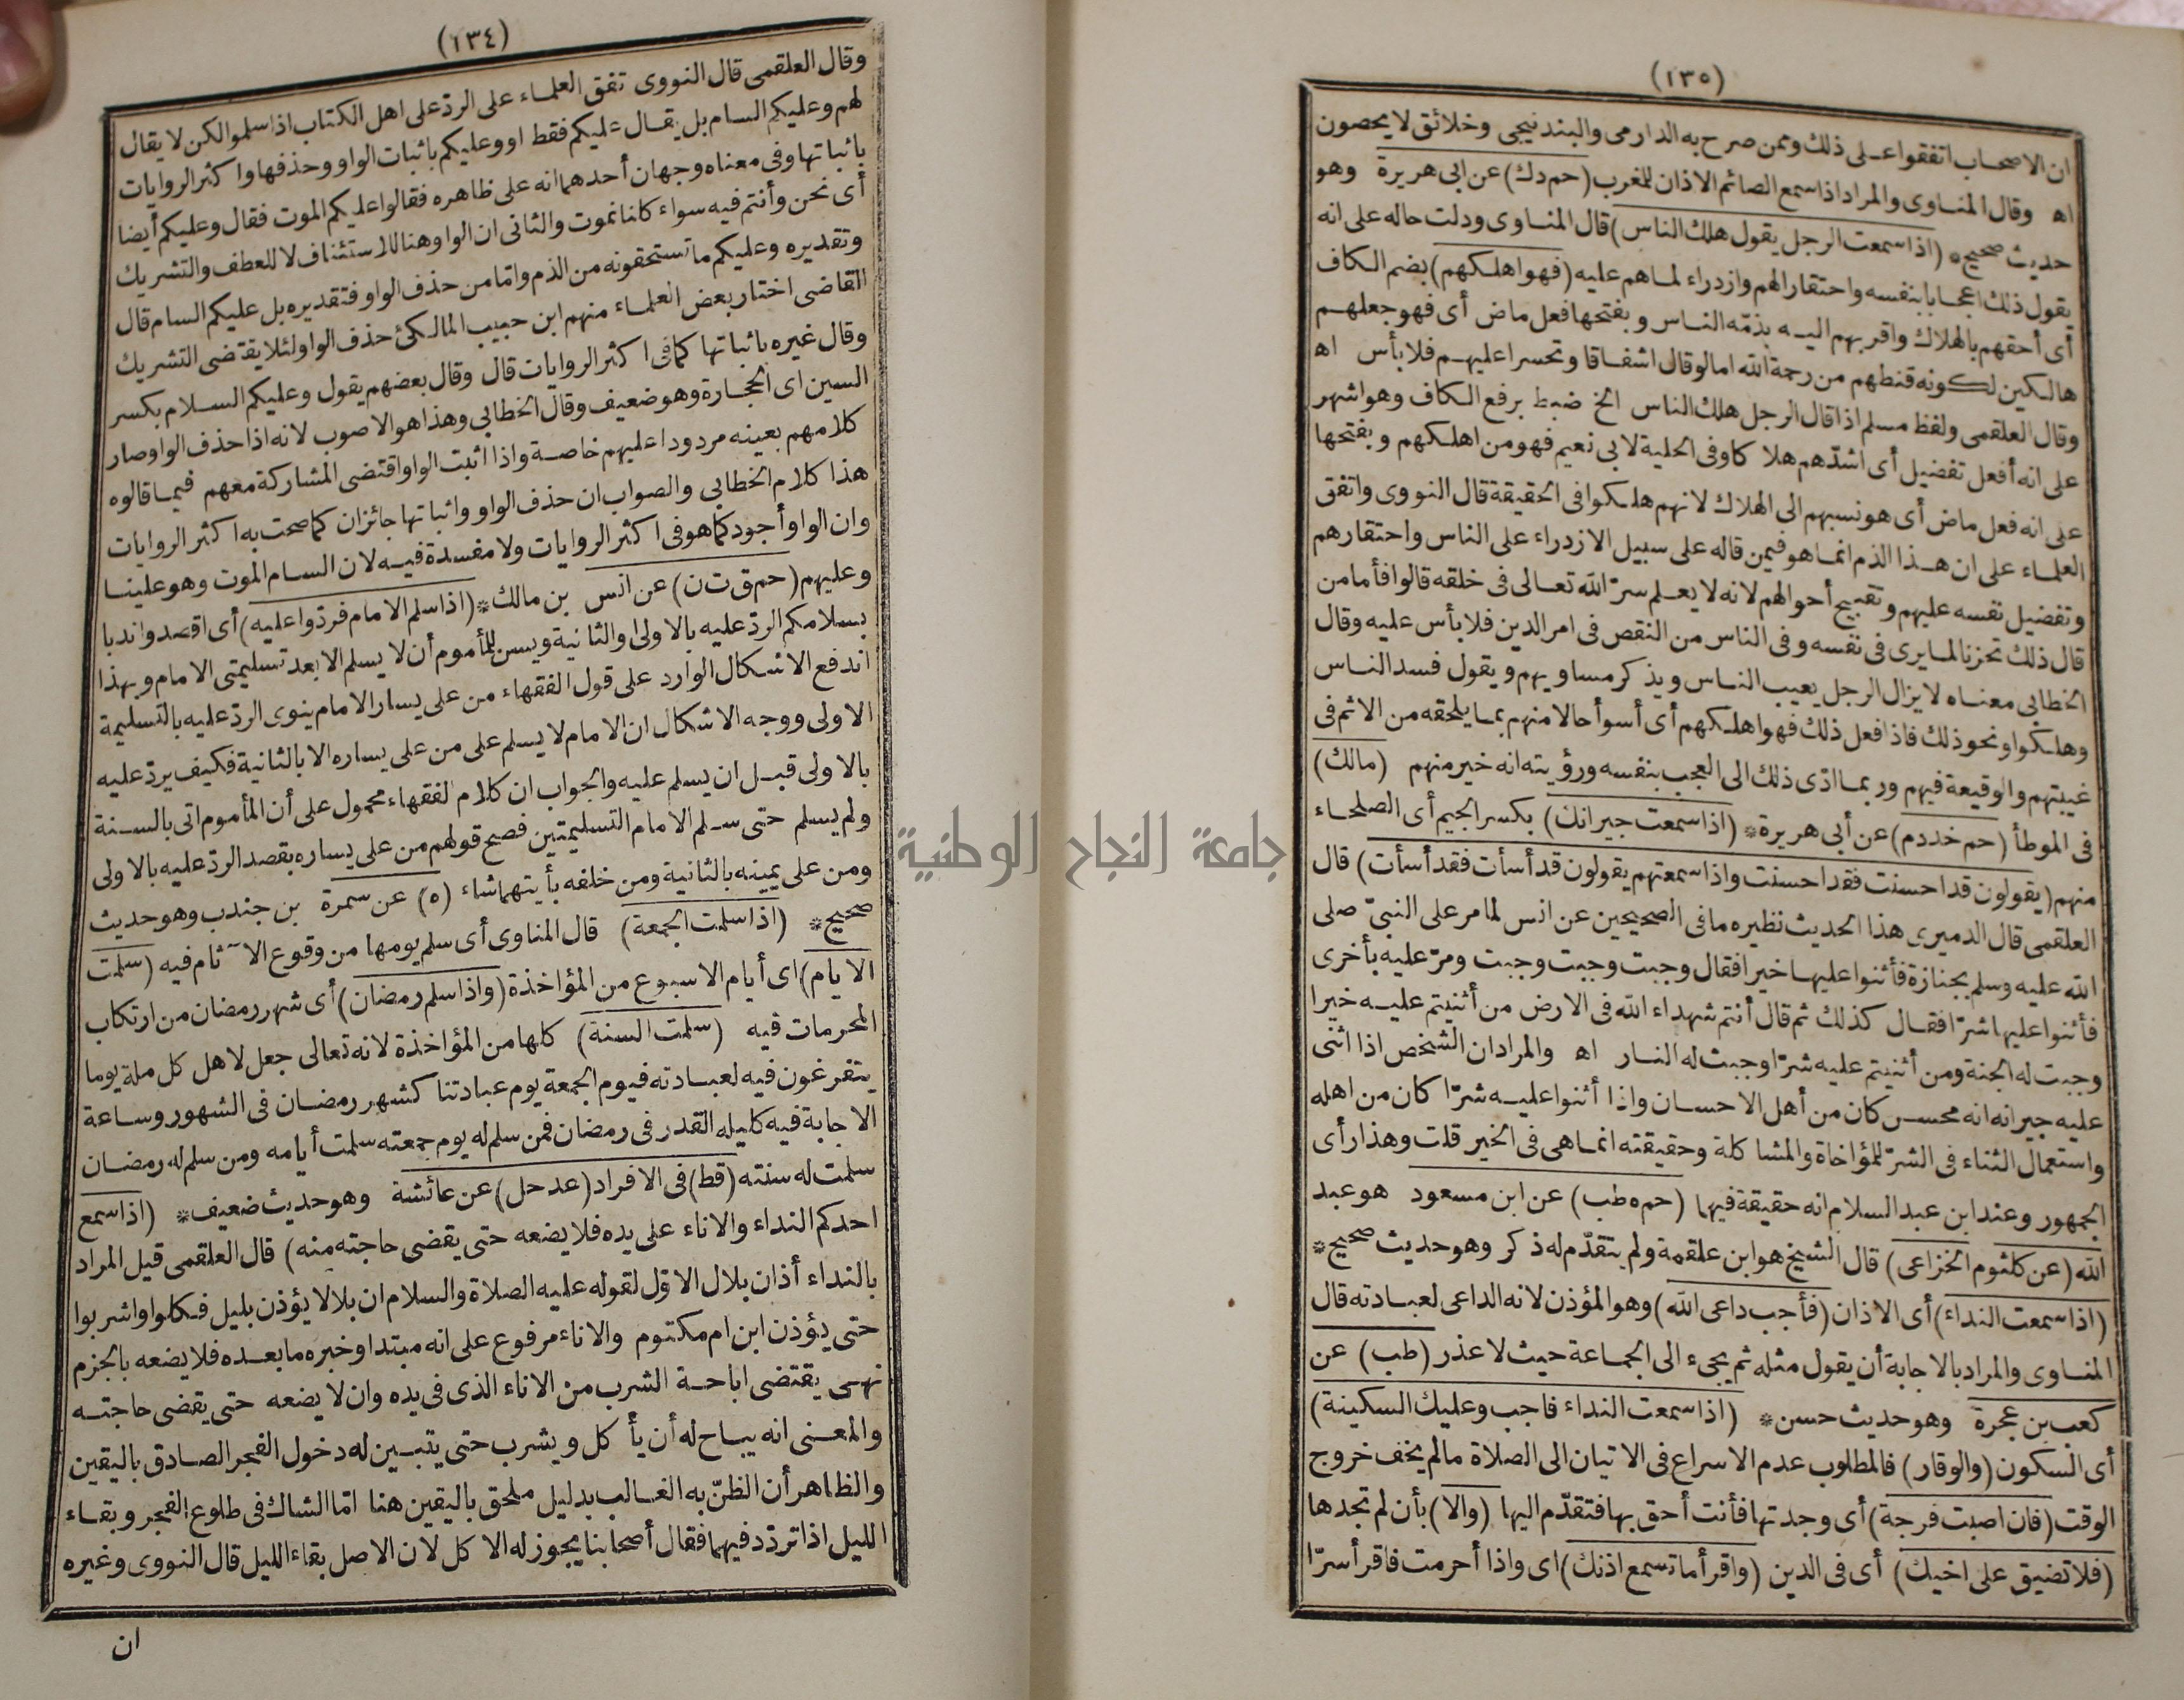 (١٣٤)
وقال العلقمى قال النووى تفق العلماء على الردّ على اهل الكتاب اذا سلموا لكن لا يقال
لهم وعليكم السام بل يقال عليكم فقط او وعليكم باثبات الواو وحذفها واكثر الروايات
باثباتها وفى معناه وجهان أحدهما انه على ظاهره فقالوا عليكم الموت فقال وعليكم أيضا
أى نحن وأنتم فيه سواء كلنا نموت والثانى ان الواو هنا للاستئناف لا للعطف والتشريك
وتقديره وعليكم ما تستحقونه من الذم واما من حذف الواو فتقديره بل عليكم السام قال
القاضى اختار بعض العلماء منهم ابن حبيب المالكى حذف الواو لئلا يقتضى التشريك
وقال غيره باثباتها كما فى اكثر الروايات قال وقال بعضهم يقول وعليكم السلام بكسر
السين اى الحجارة وهو ضعيف وقال الخطابى وهذا هو الاصوب لانه اذا حذف الواو صار
كلامهم بعينه مردودا عليهم خاصة واذا اثبت الواو اقتضى المشاركة معهم فيما قالوه
هذا كلام الخطابى والصواب ان حذف الواو واثباتها جائزان كما صحت به اكثر الروايات
وان الواو أجود كما هو فى اكثر الروايات ولا مفسدة فيه لان السام الموت وهو علينا
وعليهم (حم ق ت ن) عن انس بن مالك* (اذا سلم الامام فردّوا عليه) أى اقصدوا ندبا
بسلامكم الردّ عليه بالاولى والثانية ويسن للمأموم أن لا يسلم الا بعد تسليمتى الامام وبهذا
اندفع الاشكال الوارد على قول الفقهاء من على يسار الامام ينوى الردّ عليه بالتسليمة
الاولى ووجه الاشكال ان الامام لا يسلم على من على يساره الا بالثانية فكيف يردّ عليه
بالاولى قبل ان يسلم عليه والجواب ان كلام الفقهاء محمول على أن المأموم اتى بالسنة
ولم يسلم حتى سلم الامام التسليمتين فصح قولهم من على يساره يقصد الردّ عليه بالاولى
ومن على يمينه بالثانية ومن خلفه بأيتهما شاء (ه) عن سمرة بن جندب وهو حديث
صحيح* (اذا سلمت الجمعة) قال المناوى أى سلم يومها من وقوع الآثام فيه (سلمت
الايام) اى أيام الاسبوع من المؤاخذة (واذا سلم رمضان) أى شهر رمضان من ارتكاب
المحرمات فيه (سلمت السنة) كلها من المؤاخذة لانه تعالى جعل لاهل كل ملة يوما
يتفرغون فيه لعبادته فيوم الجمعة يوم عبادتنا كشهر رمضان فى الشهور وساعة
الاجابة فيه كليله القدر فى رمضان فمن سلم له يوم جمعته سلمت أيامه ومن سلم له رمضان
سلمت له سنته (قط) فى الافراد (عد حل) عن عائشة وهو حديث ضعيف* (اذا سمع
احدكم النداء والاناء على يده فلا يضعه حتى يقضى حاجته منه) قال العلقمى قيل المراد
بالنداء أذان بلال الاوّل لقوله عليه الصلاة والسلام ان بلالا يؤذن بليل فكلوا واشربوا
حتى يؤذن ابن ام مكتوم والاناء مرفوع على انه مبتدا وخبره ما بعده فلا يضعه بالجزم
نهى يقتضى اباحة الشرب من الاناء الذى فى يده وان لا يضعه حتى يقضى حاجته
والمعنى انه يباح له أن يأكل ويشرب حتى يتبين له دخول الفجر الصادق باليقين
والظاهر أن الظنّ به الغالب بدليل ملحق باليقين هنا امّا الشاك فى طلوع الفجر وبقاء
الليل اذا تردّد فيهما فقال أصحابنا يجوز له الاكل لان الاصل بقاء الليل قال النووى وغيره
ان
(١٣٥)
ان الاصحاب اتفقوا على ذلك وممن صرح به الدارمى والبندنيجى وخلائق لا يحصون
اه وقال المناوى والمراد اذا سمع الصائم الاذان للمغرب (حم د ك) عن ابى هريرة وهو
حديث صحيح* (اذا سمعت الرجل يقول هلك الناس) قال المناوى ودلت حاله على انه
يقول ذلك اعجابا بنفسه واحتقارا لهم وازدراء لما هم عليه (فهو اهلكهم) بضم الكاف
أى أحقهم بالهلاك واقربهم اليه بذمّه الناس وبفتحها فعل ماض أى فهو جعلهم
هالكين لكونه قنطهم من رحمة الله اما لو قال اشفاقا وتحسرا عليهم فلا بأس اه
وقال العلقمى ولفظ مسلم اذا قال الرجل هلك الناس الخ ضبط برفع الكاف وهو اشهر
على انه أفعل تفضيل أى اشدّهم هلا كا وفى الحلية لابى نعيم فهو من اهلكهم وبفتحها
على انه فعل ماض أى هو نسبهم الى الهلاك لانهم هلكوا فى الحقيقة قال النووى واتفق
العلماء على ان هذا الذم انما هو فيمن قاله على سبيل الازدراء على الناس واحتقارهم
وتفضيل نفسه عليهم وتقبيح أحوالهم لانه لا يعلم سرّ الله تعالى فى خلقه قالوا فأما من
قال ذلك تحزنا لما يرى فى نفسه وفى الناس من النقص فى امر الدين فلا بأس عليه وقال
الخطابى معناه لا يزال الرجل يعيب الناس ويذكر مساويهم ويقول فسد الناس
وهلكوا ونحو ذلك فاذا فعل ذلك فهو اهلكهم أى أسوأ حالا منهم بما يلحقه من الاثم فى
غيبتهم والوقيعة فيهم وربما ادّى ذلك الى العجب بنفسه ورؤيته انه خير منهم (مالك)
فى الموطأ (حم خد د م) عن أبى هريرة* (اذا سمعت جيرانك) بكسر الجيم أى الصلحاء
منهم (يقولون قد احسنت فقد احسنت واذا سمعتهم يقولون قد أسأت فقد أسأت) قال
العلقمى قال الدميرى هذا الحديث نظيره ما فى الصحيحين عن انس لما مر على النبىّ صلى
الله عليه وسلم بجنازة فأثنوا عليها خيرا فقال وجبت وجبت وجبت ومرّ عليه بأخرى
فأثنوا عليها شرّا فقال كذلك ثم قال أنتم شهداء الله فى الارض من أثنيتم عليه خيرا
وجبت له الجنة ومن أثنيتم عليه شرّا وجبت له النار اه والمراد ان الشخص اذا اثنى
عليه جيرانه انه محسن كان من أهل الاحسان واذا أثنوا عليه شرّا كان من اهله
واستعمال الثناء فى الشرّ للمؤاخاة والمشاكلة وحقيقته انما هى فى الخير قلت وهذا رأى
الجمهور وعند ابن عبد السلام انه حقيقة فيها (حم ه طب) عن ابن مسعود هو عبد
الله (عن كلثوم الخزاعى) قال الشيخ هو ابن علقمة ولم يتقدّم له ذكر وهو حديث صحيح*
(اذا سمعت النداء) أى الاذان (فأجب داعى الله) وهو المؤذن لانه الداعى لعبادته قال
المناوى والمراد بالاجابة أن يقول مثله ثم يجىء الى الجماعة حيث لا عذر (طب) عن
كعب بن عجرة وهو حديث حسن* (اذا سمعت النداء فاجب وعليك السكينة)
أى السكون (والوقار) فالمطلوب عدم الاسراع فى الاتيان الى الصلاة ما لم يخف خروج
الوقت (فان اصبت فرجة) أى وجدتها فأنت أحق بها فتقدّم اليها (والا) بأن لم تجدها
(فلا تضيق على اخيك) أى فى الدين (واقرأ ما تسمع اذنك) اى واذا أحرمت فاقرأ سرّا
جامعة النجاح الوطنية